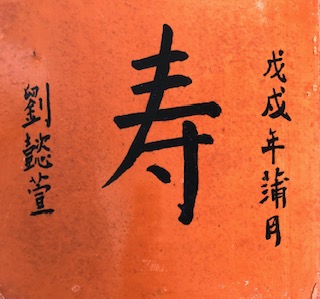 戊戌年蒲月
寿
劉懿萱